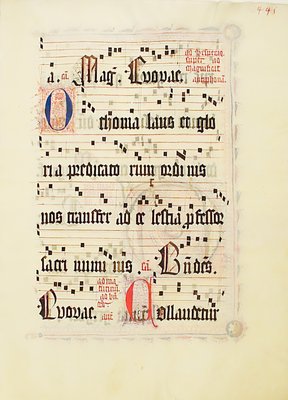 a. Mag̃. Euouae.
O thoma laus et glo
ri a predicato rum ordi nis
nos transfer ad ce lestia ꝓfessor
sacri numi nis. Bn̄dēs.
Euouae. Collaudetur